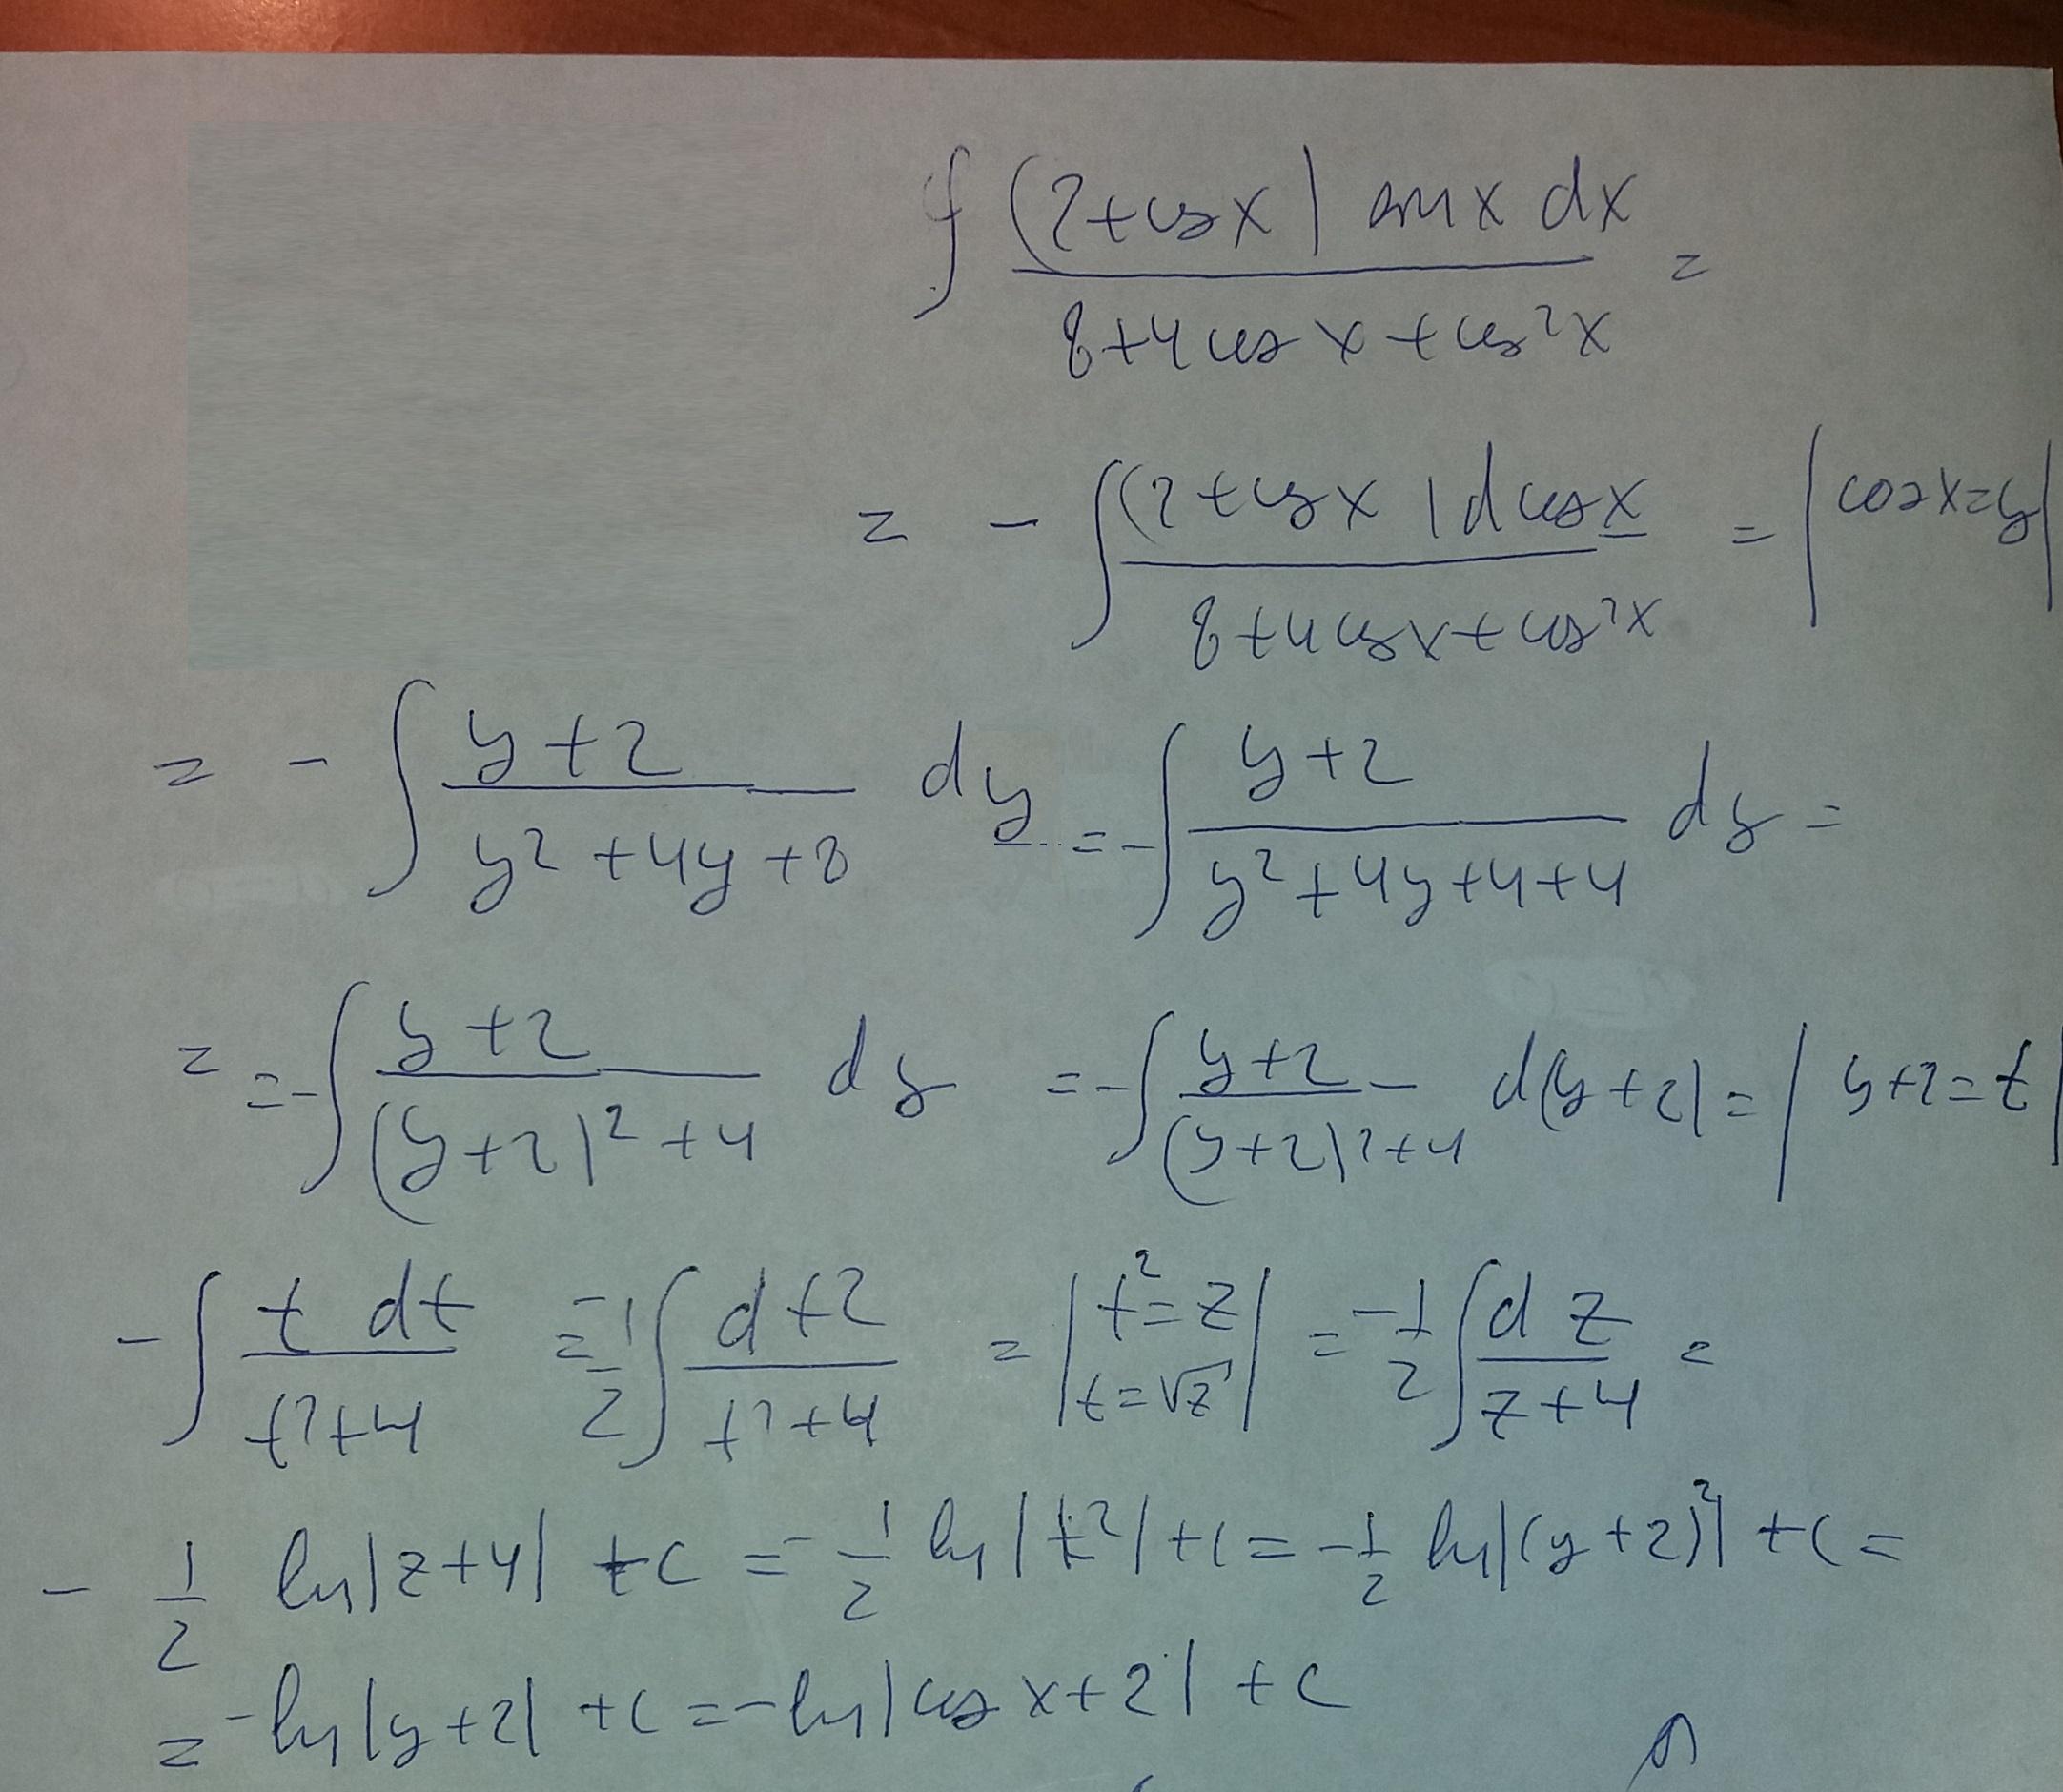 ∫ (2+cos x) sin x dx / 8+4 cos x + cos²x =
= - ∫ (2+cos x) d cos x / 8+4 cos x + cos²x = | cos x = y |
= - ∫ y+2 / y²+4y+8 dy = - ∫ y+2 / y²+4y+4+4 dy =
= = - ∫ y+2 / (y+2)²+4 dy = - ∫ y+2 / (y+2)²+4 d(y+2) = | y+2=t |
- ∫ t dt / t²+4 = -1/2 ∫ dt² / t²+4 = | t²=z t=√z | = -1/2 ∫ dz / z+4 =
- 1/2 ln|z+4| + c = - 1/2 ln|t²| + c = - 1/2 ln|(y+2)²| + c =
= - ln|y+2| + c = - ln|cos x+2| + c